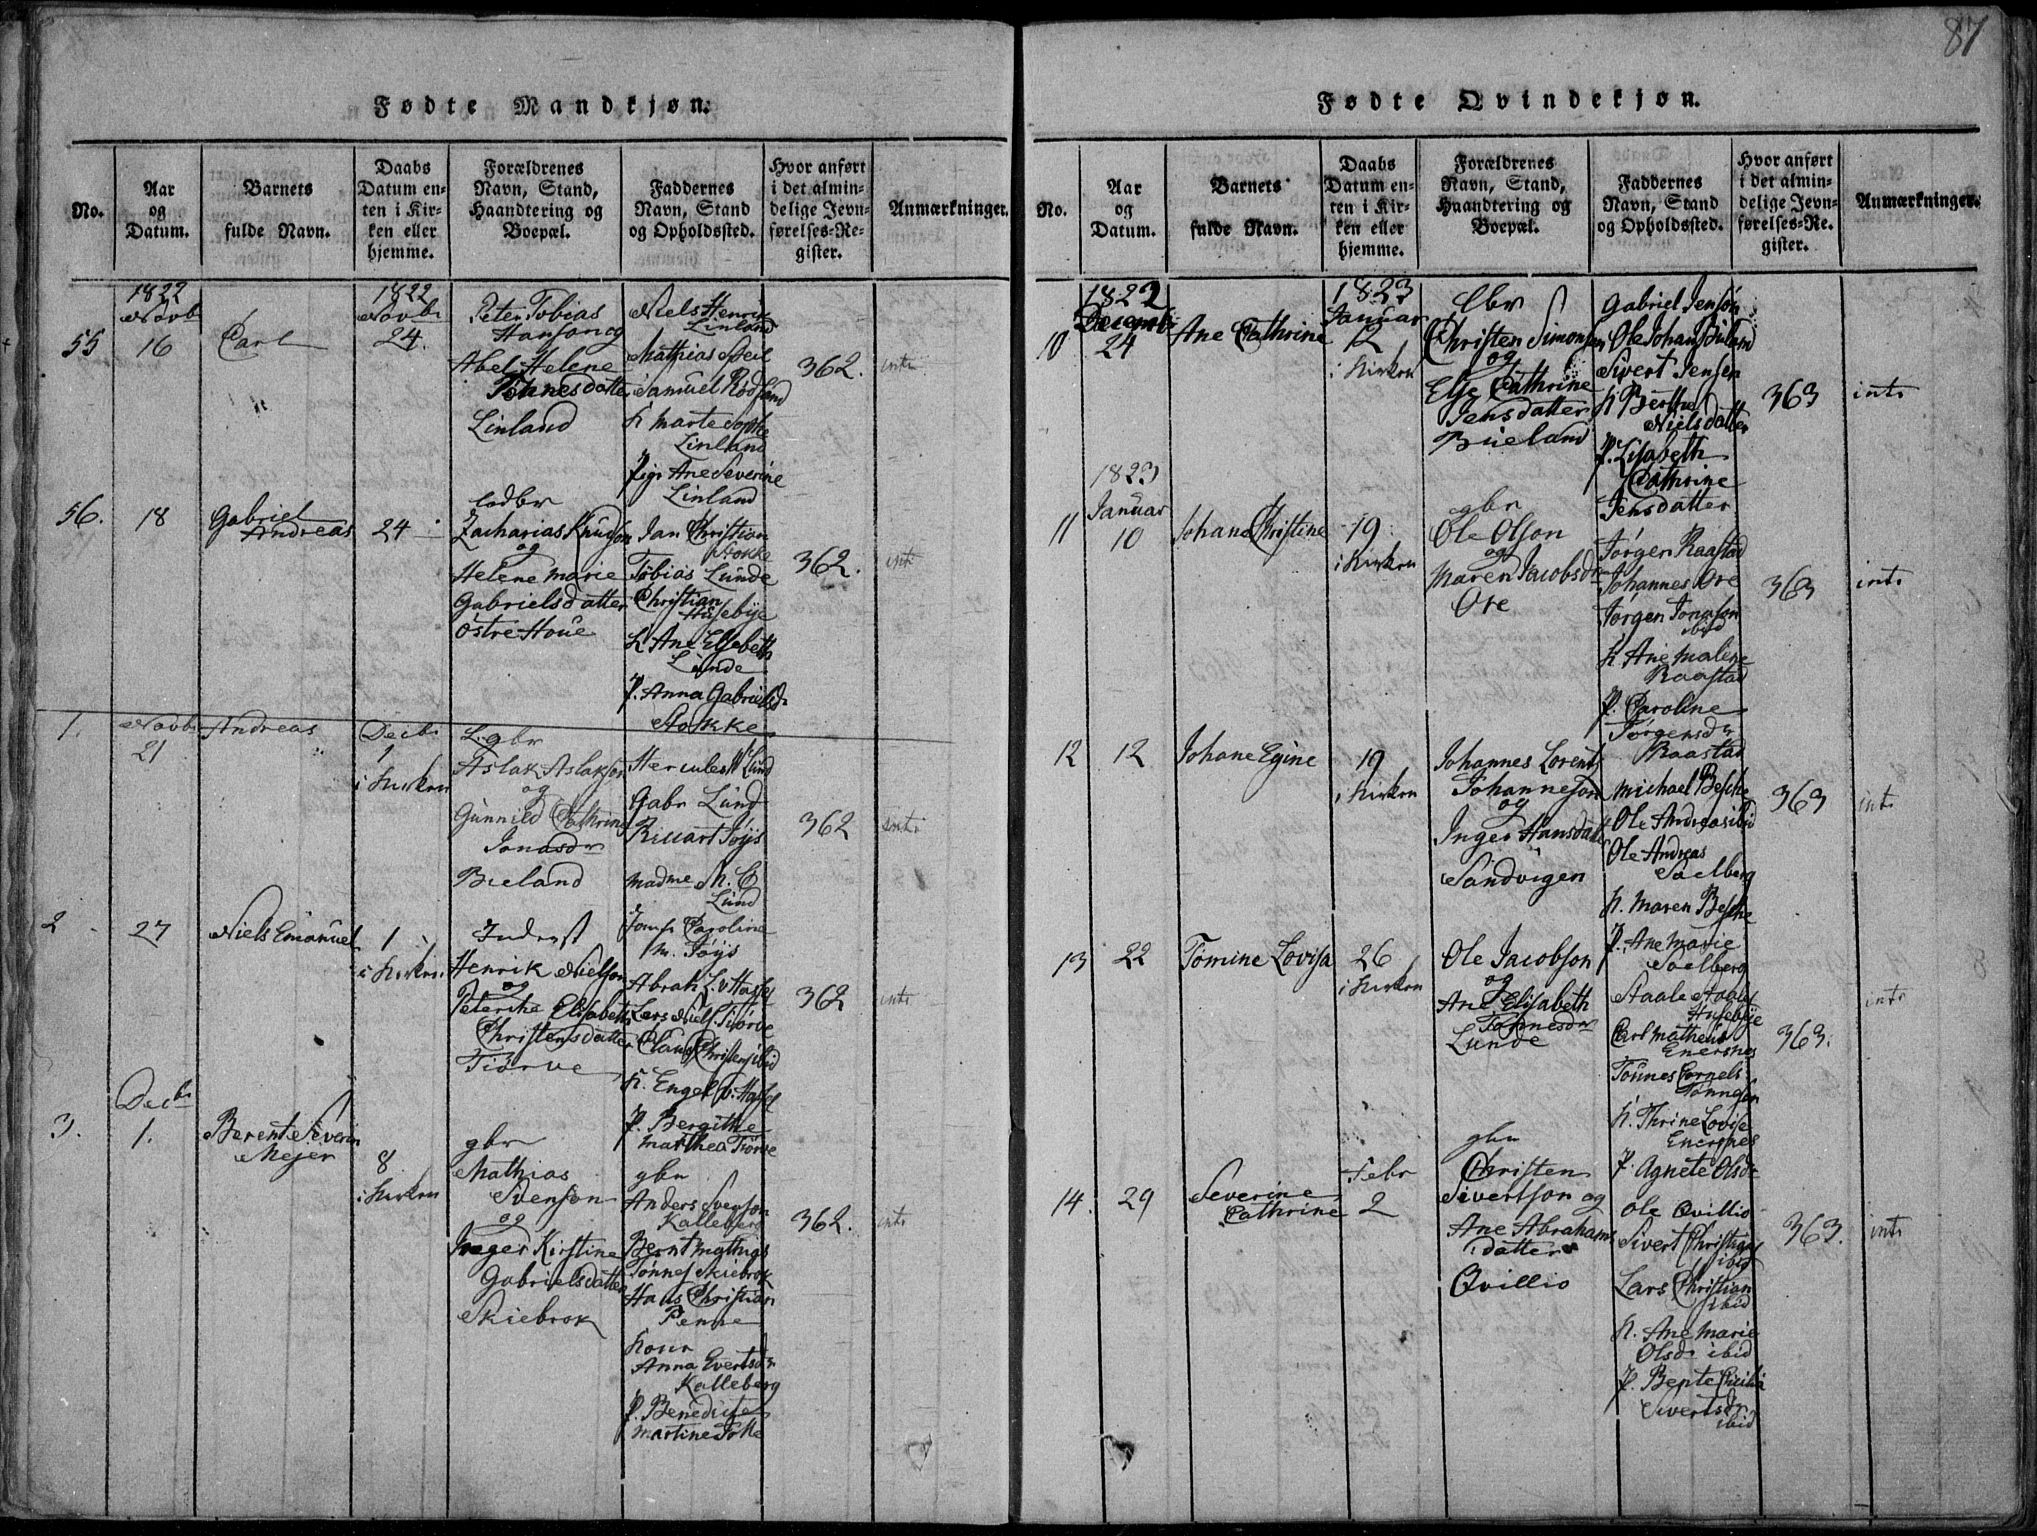 87
Fødte Mandkjøn.
No.
Aar
og
Datum.
Barnets
fulde Navn.
Daabs
Datum en-
ten i Kir-
ken eller
hjemme.
Forældrenes
Navn, Stand,
Haandtering og
Boepæl.
Faddernes
Navn, Stand
og Opholdssted.
Hvor anført
i det almin-
delige Jevn-
førelses-Re-
gister.
Anmærkninger.
55
1822
Novbr
16
Carl
1822
Novbr
24.
Peter Tobias
Hanson og
Abel Helene
Tønnesdatter
Linland
Niels Henrik
Linland
Mathias Steil
Samuel Rødland
K Marte Sophie
Linland
Pige Ane Severine
Linland
362.
intr
56.
18
Gabriel
Andreas
24
Zacharias Knudson
og
Helene Marie
Gabrielsdatter
Østre Houe
Jan Christian
Stokke
Tobias Lunde
Christian
Husebye
K Ane Elsebeth
Lunde
P. Anna Gabrielsdr
Stokke
362.
intr
1.
Novbr
21
Andreas
Decbr
1
i Kirken
L. gbr
Aslak Aslakson
og
Gunnild Cathrine
Jonasdr
Bieland
Hercules W Lund
Gabr Lund
Rieart Föÿs
Madme M. C
Lund
Jomfr Caroline
M. Föÿs
362
intr
2
27
Niels Emanuel
1
i Kirken
Inderst
Henrik Nielson
og
Peterche Elisabeth
Christensdatter
Tiørve
Abrah L. v Hassel
Lars Niels. Tiörve
Claus Christens ibid
K. Engel v. Hassel
P. Bergithe
Marthea Tiørve
362
intr
3.
Decbr
1.
Berent Severin
Mejer
8
i Kirken
gbr
Mathias
Svenson
og
Inger Kirstine
Gabrielsdatter
Skiebrok
gbr
Anders Svenson
Kalleberg
Bernt Mathias
Tønnes Skiebrok
Hans Christian
Penne
Kone
Anna Evertsdr
Kalleberg
P. Benedicte
Martine
362.
intr
Fødte Qvindekjøn.
No.
Aar
og
Datum.
Barnets
fulde Navn.
Daabs
Datum en-
ten i Kir-
ken eller
hjemme.
Forældrenes
Navn, Stand,
Haandtering og
Boepæl.
Faddernes
Navn, Stand
og Opholdssted.
Hvor anført
i det almin-
delige Jevn-
førelses-Re-
gister.
Anmærkninger.
10
1822
Decembr
24
Ane Cathrine
1823
Januar
12
i Kirken
Christen Simonsen
og
Else Cathrine
Jensdatter
Büeland
Gabriel Jensøn
Ole Johan Büland
Sivert Jensen
K Berthe
Nielsdatter
P. Lisabeth
Cathrine
Jensdatter
363
intr
11
1823
Januar
10
Johane Christine
19
i Kirken
gbr
Ole Olson
og
Maren Jacobsdr
Ore
Jørgen Raastad
Johannes Ore
Jørgen Jonason
ibid
K Ane Malene
Raastad
P. Caroline
Jørgensdr
Raastad
363
intr
12
12
Johane Egine
19
i Kirken
Johannes Lorents
Johanneson
og
Inger Hansdatter
Sandvigen
Michael Besche
Ole Andreas ibid
Ole Andreas
Soelberg
K. Maren Besche
P. Ane Marie
Soelberg
363
intr
13
22
Tomine Lovisa
26
i Kirken
Ole Jacobson
og
Ane Elisabeth
Tønnesdr
Lunde
Staale Staales
Husebÿe
Carl Matheus
Enersnes
Tønnes Cornels
Tønneson
K. Thrine Lovise
Enersnes
P. Agnete Olsdr
363.
intr
14.
29
Severine
Cathrine
Febr
2
gbr
Christen
Sivertson og
Ane Abrahams
datter
Qvillio
Ole Qvillio
Sivert Christians
ibid
Lars Christian
ibid
K. Ane Marie
Olsdr ibid
P. Bente Cecilia
Sivertsdr
ibid
363.
intr